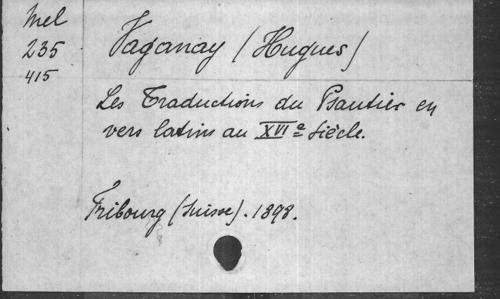 Mel
235
415
Vaganay (Hugues)
Les Traductions du Psautier en
vers latins au XVIe Siècle.
Fribourg (Suisse). 1898.